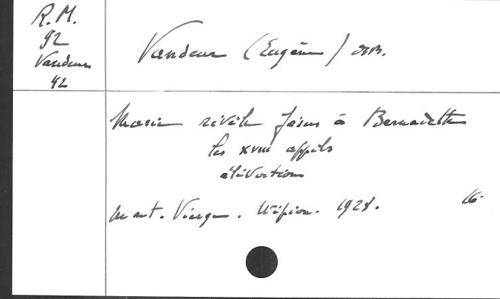 R. M.
92
Vandeur
42
Vandeur (Eugène) OSB.
Marie révèle Jésus à Bernadette
les XVIII appels
élévations
Mont. Vierge. Wépion. 1928.
16